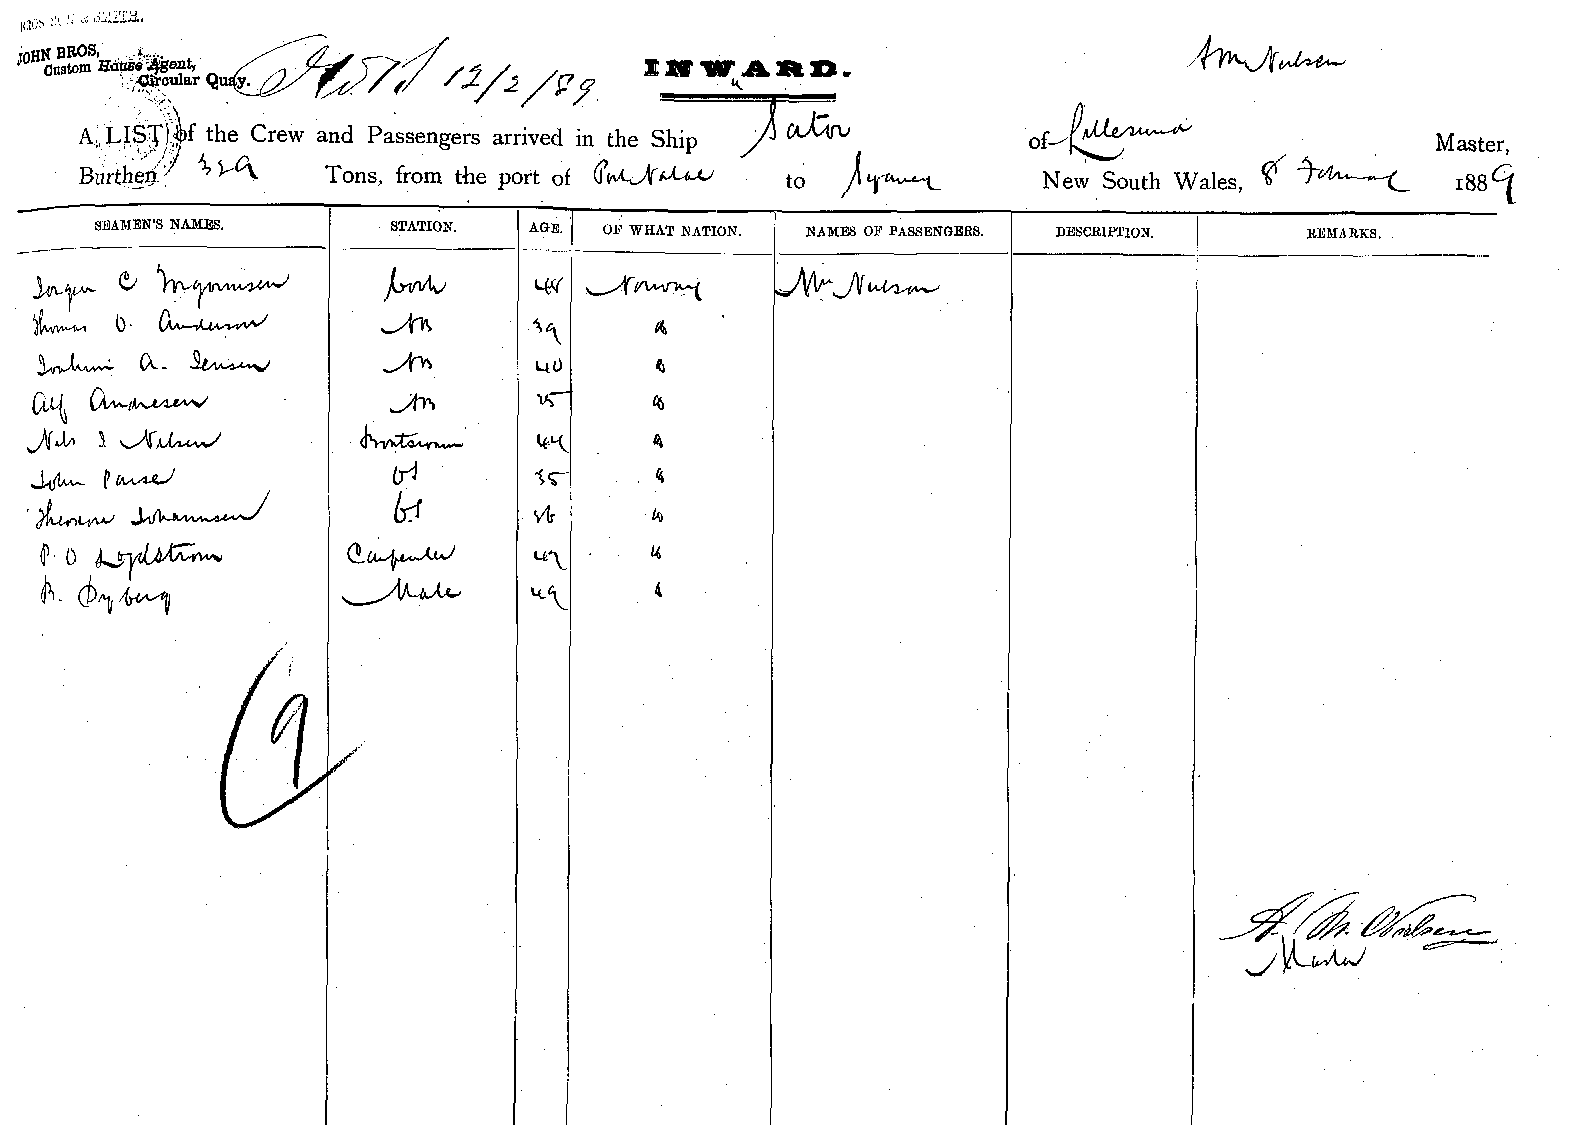 JOHN BROS,
Custom House Agent,
Circular Quay.
12/2/89
INWARD.
A M Nielsen
A LIST of the Crew and Passengers arrived in the Ship Sator of Lillesund Master,
Burthen 329 Tons, from the port of Port Natal to Sydney New South Wales, 8 February 1889
SEAMEN'S NAMES. STATION. AGE. OF WHAT NATION. NAMES OF PASSENGERS. DESCRIPTION. REMARKS.
Jorgen C Cook 48 Norway Mrs Nielsen
Thomas O. Anderson AB 39 "
A. Jensen AB 40 "
Alf Andresen AB 25 "
Nils J Nilsen Boatswain 44 "
John OS 35 "
Theodore Johannsen OS 36 "
P. O Carpenter "
B. Dyberg Mate 49 "
9
A. M. Nielsen
Master